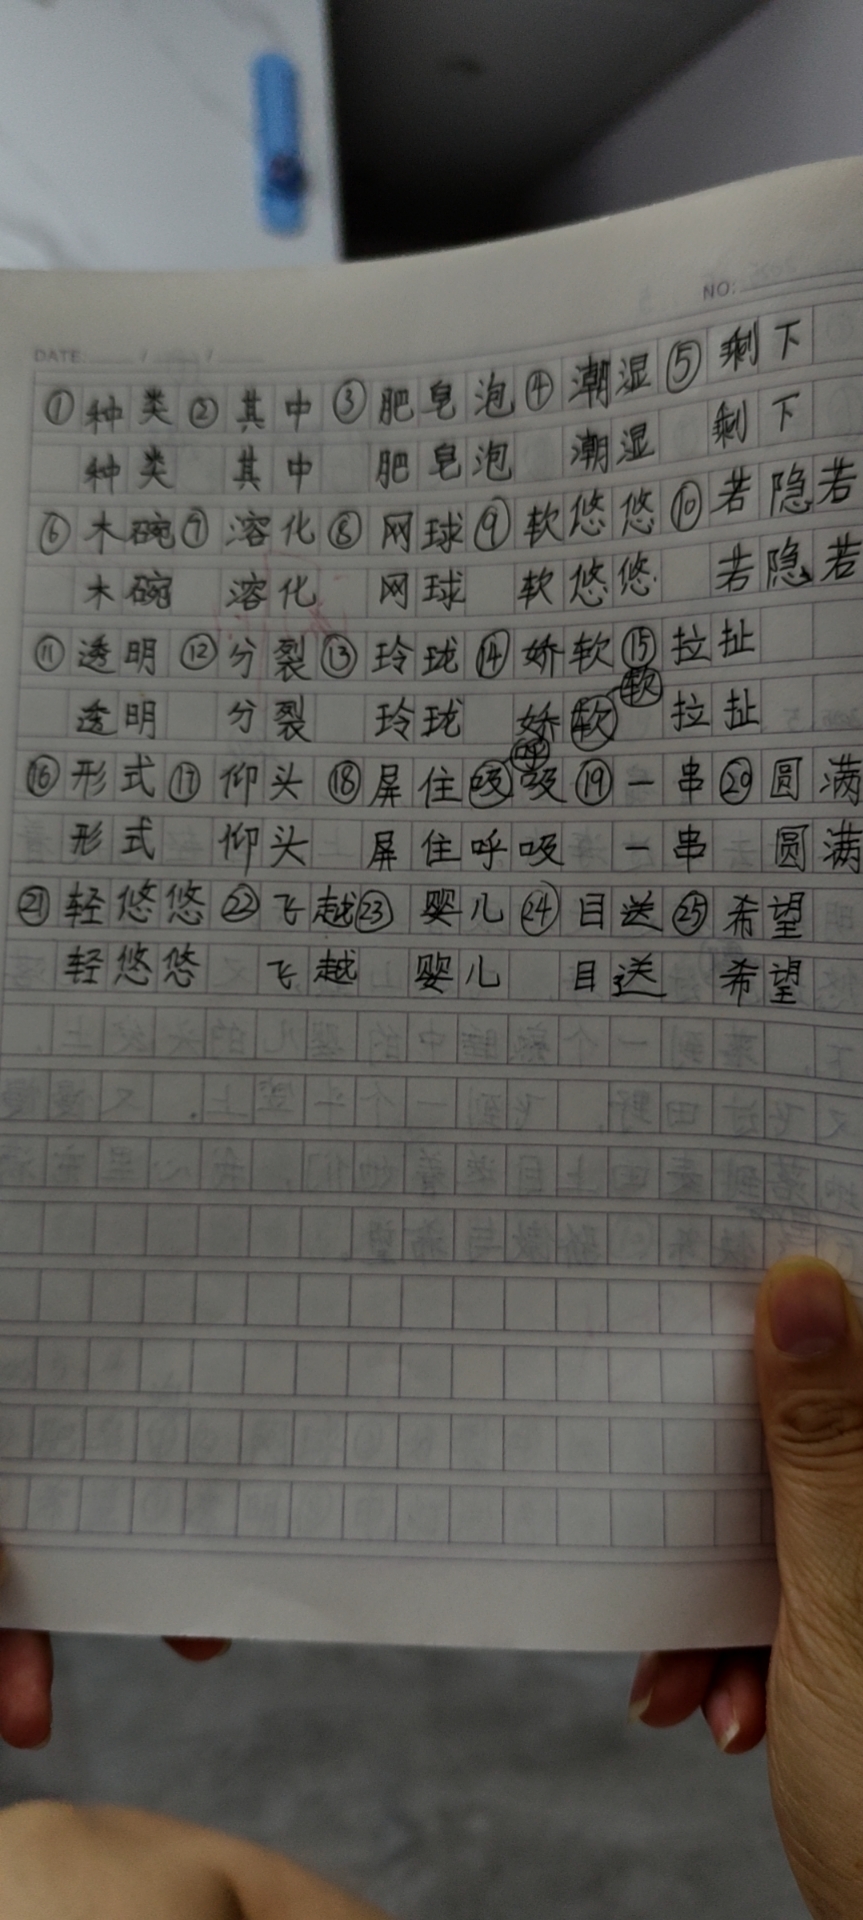 NO:
DATE
①种类②其中③肥皂泡④潮湿⑤剩下
种类 其中 肥皂泡 潮湿 剩下
⑥木碗⑦溶化⑧网球⑨软悠悠⑩若隐若
木碗 溶化 网球 软悠悠 若隐若
⑪透明⑫分裂⑬玲珑⑭娇软⑮拉扯
透明 分裂 玲珑 娇软 拉扯
⑯形式⑰仰头⑱屏住呼吸⑲一串⑳圆满
形式 仰头 屏住呼吸 一串 圆满
㉑轻悠悠㉒飞越㉓婴儿㉔目送㉕希望
轻悠悠 飞越 婴儿 目送 希望